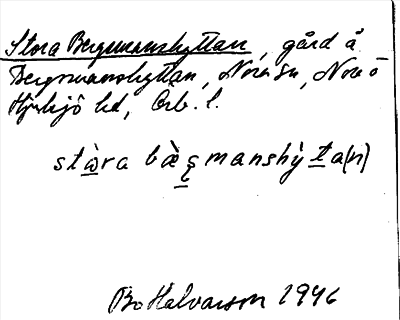 Stora Bergmanshyttan, gård å
Bergmanshyttan, Nora sn, Nora o
Hjulsjö hd, Örb. l.
stὼra bæ̀ꞓmanshỳta(n)
Bo Halvarson 1946